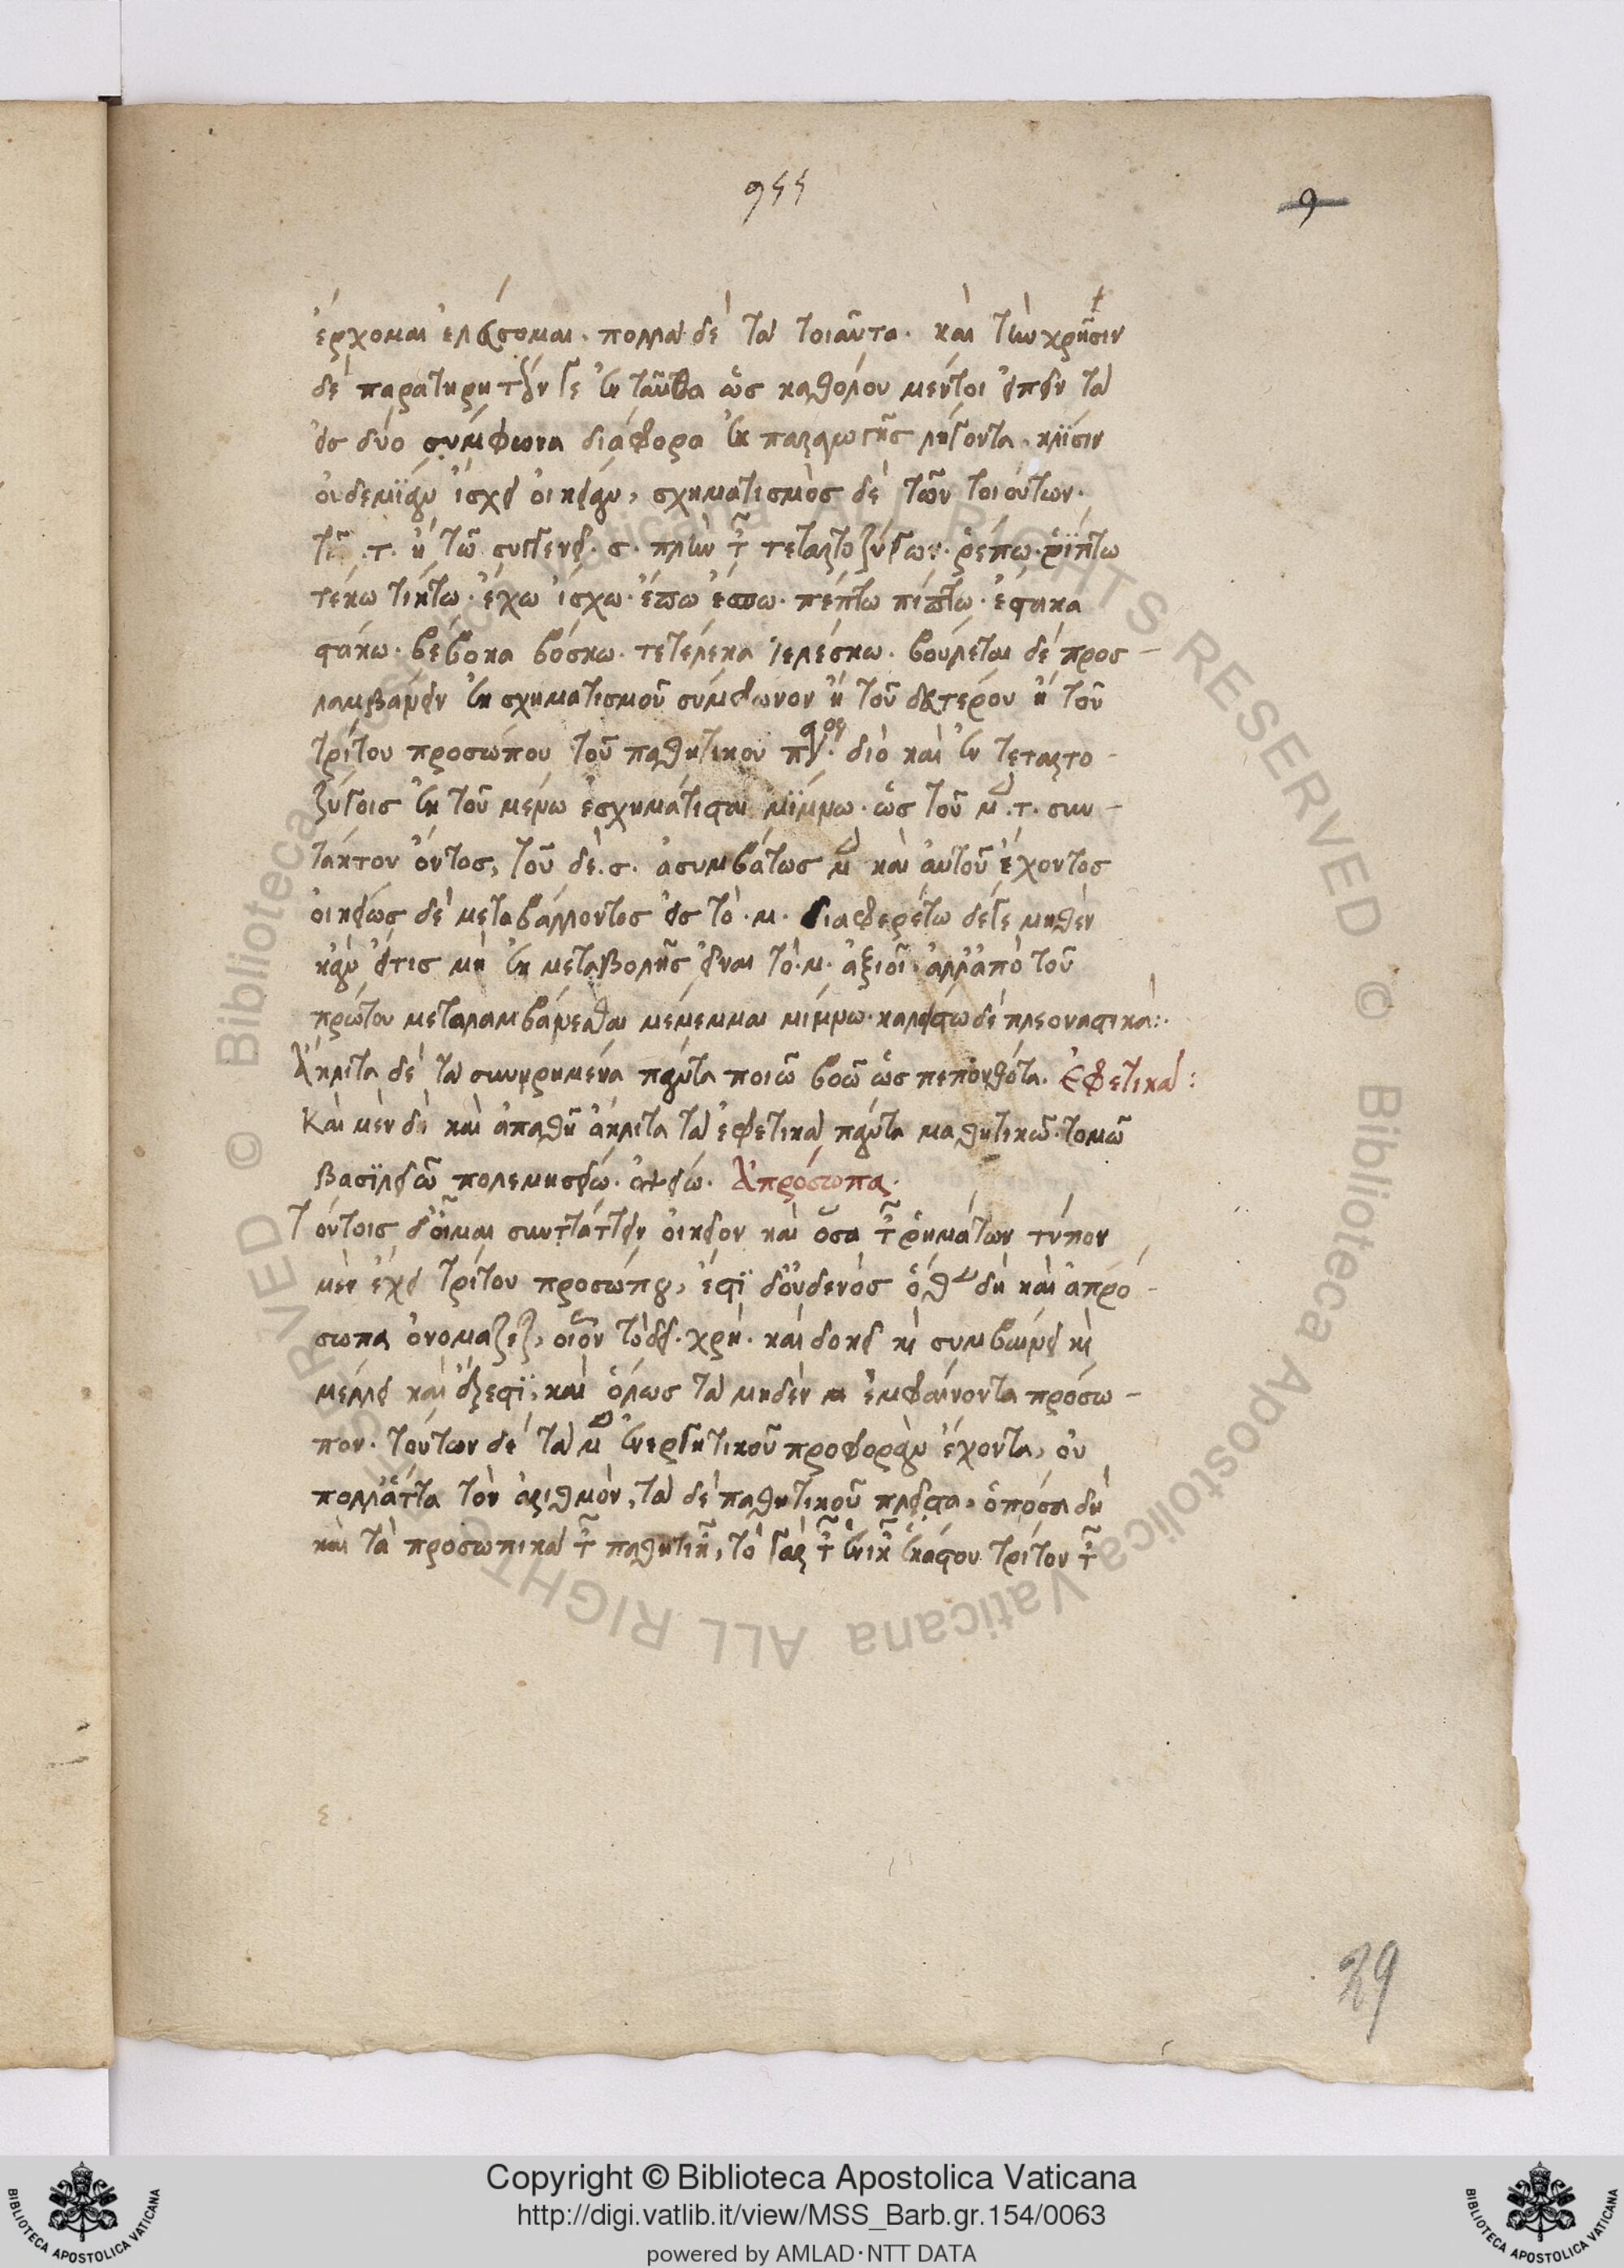 955
9
ἔρχομαι ἐλεύσομαι. πολλὰ δὲ τὰ τοιαῦτα. καὶ τὴν χρῆσιν
δὲ παρατηρητέον γε ἐνταῦθα ὡς καθόλου μέντοι εἰπεῖν τὰ
εἰς δύο σύμφωνα διάφορα ἐκ παραγωγῆς λήγοντα. κλίσιν
οὐδεμίαν ἴσχει οἰκείαν, σχηματισμὸς δὲ τῶν τοιούτων.
τῶ .τ. ἢ τῶ συγγενεῖ .σ. πλὴν τῶν τεταρτοζύγων. ῥέπω. ῥίπτω
τέκω τίκτω. ἔχω ἴσχω. ἔπω ἔσπω. πέπτω πίπτω. ἔφηκα
φάκω. βέβοκα βόσκω. τετέλεκα τελέσκω. βούλεται δὲ προσ-
λαμβάνειν ἐκ σχηματισμοῦ σύμφωνον ἢ τοῦ δευτέρου ἢ τοῦ
τρίτου προσώπου τοῦ παθητικοῦ διὸ καὶ ἐν τεταρτο-
ζύγοις ἐκ τοῦ μένω ἐσχημάτισται μίμνω. ὡς τοῦ μὲν .τ. συν-
τάκτου ὄντος, τοῦ δὲ .σ. ἀσυμβάτως μὲν καὶ αὐτοῦ ἔχοντος
οἰκείως δὲ μεταβάλλοντος εἰς τὸ .μ. διαφερέτω δέ γε μηθὲν
κἂν εἴ τις μὴ ἐκ μεταβολῆς εἶναι τὸ .μ. ἀξιοῖ. ἀλλ' ἀπὸ τοῦ
πρώτου μεταλαμβάνεσθαι μέμεμμαι μίμνω. καλείσθω δὲ πλεοναστικά:.
Ἄκλιτα δὲ τὰ συνῃρημένα πάντα ποιῶ βοῶ ὡς πεπονθότα. Ἐφετικά:
Καὶ μὲν δὴ καὶ ἀπαθῆ ἄκλιτα τὰ ἐφετικὰ πάντα μαθητικῶ. τομῶ
βασιλειῶ πολεμησείω. Ἀπρόσωπα.
Τούτοις δ' οἶμαι συντάττειν οἰκεῖον καὶ ὅσα τῶν ῥημάτων τύπον
μὲν ἔχει τρίτου προσώπου, ἐστὶ δ' οὐδενὸς ὅθεν δὴ καὶ ἀπρό-
σωπα ὀνομάζεται, οἷον τὸ δεῖ. χρή. καὶ δοκεῖ καὶ συμβαίνει καὶ
μέλλει καὶ ἔξεστι, καὶ ὅλως τὰ μηδὲν ἐμφαίνοντα πρόσω-
πον. τούτων δὲ τὰ μὲν ἐνεργητικοῦ προφορὰν ἔχοντα, οὐ
πολλάττα τὸν ἀριθμόν, τὰ δὲ παθητικοῦ πλεῖστα, ὁπόσα δὴ
καὶ τὰ προσωπικὰ τῶν παθητικῶν, τὸ γὰρ τῶν ἑνικῶν ἑκάστου τρίτον τῶν
39
Copyright © Biblioteca Apostolica Vaticana
http://digi.vatlib.it/view/MSS_Barb.gr.154/0063
powered by AMLAD·NTT DATA